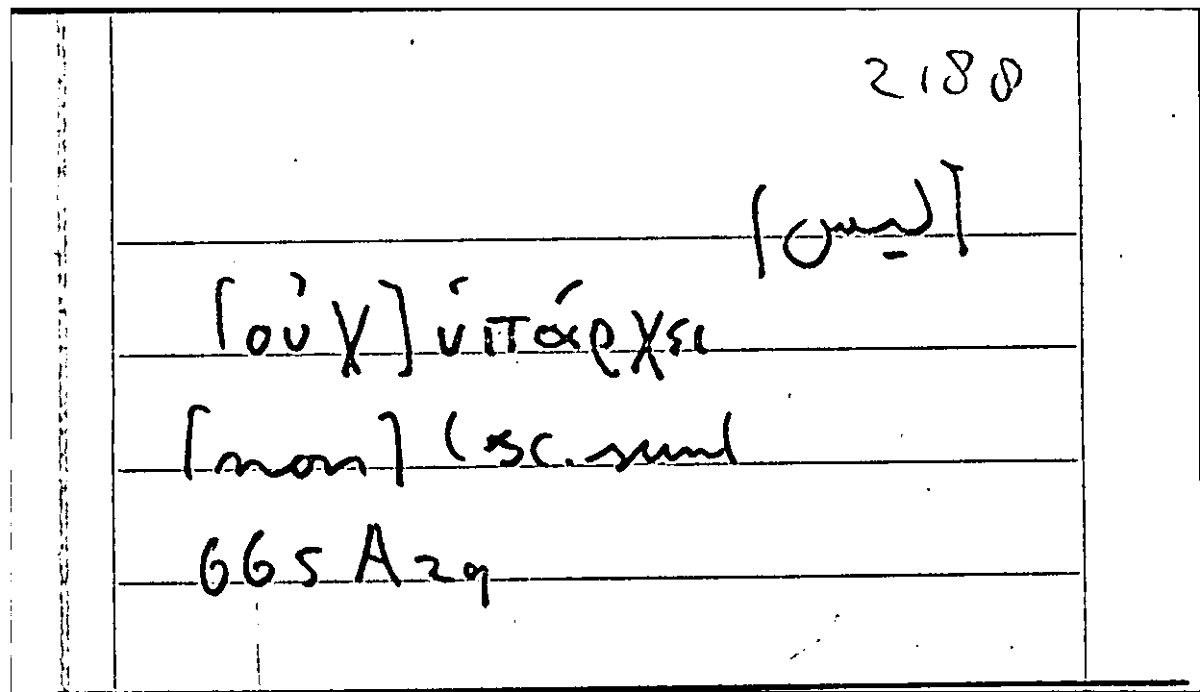 2188
[οὐχ] ὑπάρχει
[non] (sc. sunt
665 A 29